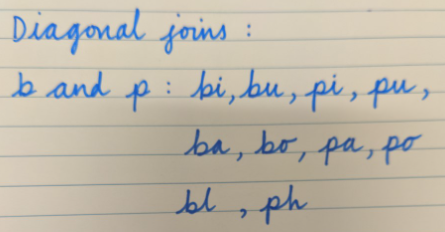 Diagonal joins :
b and p : bi, bu, pi, pu,
ba, bo, pa, po
bl , ph